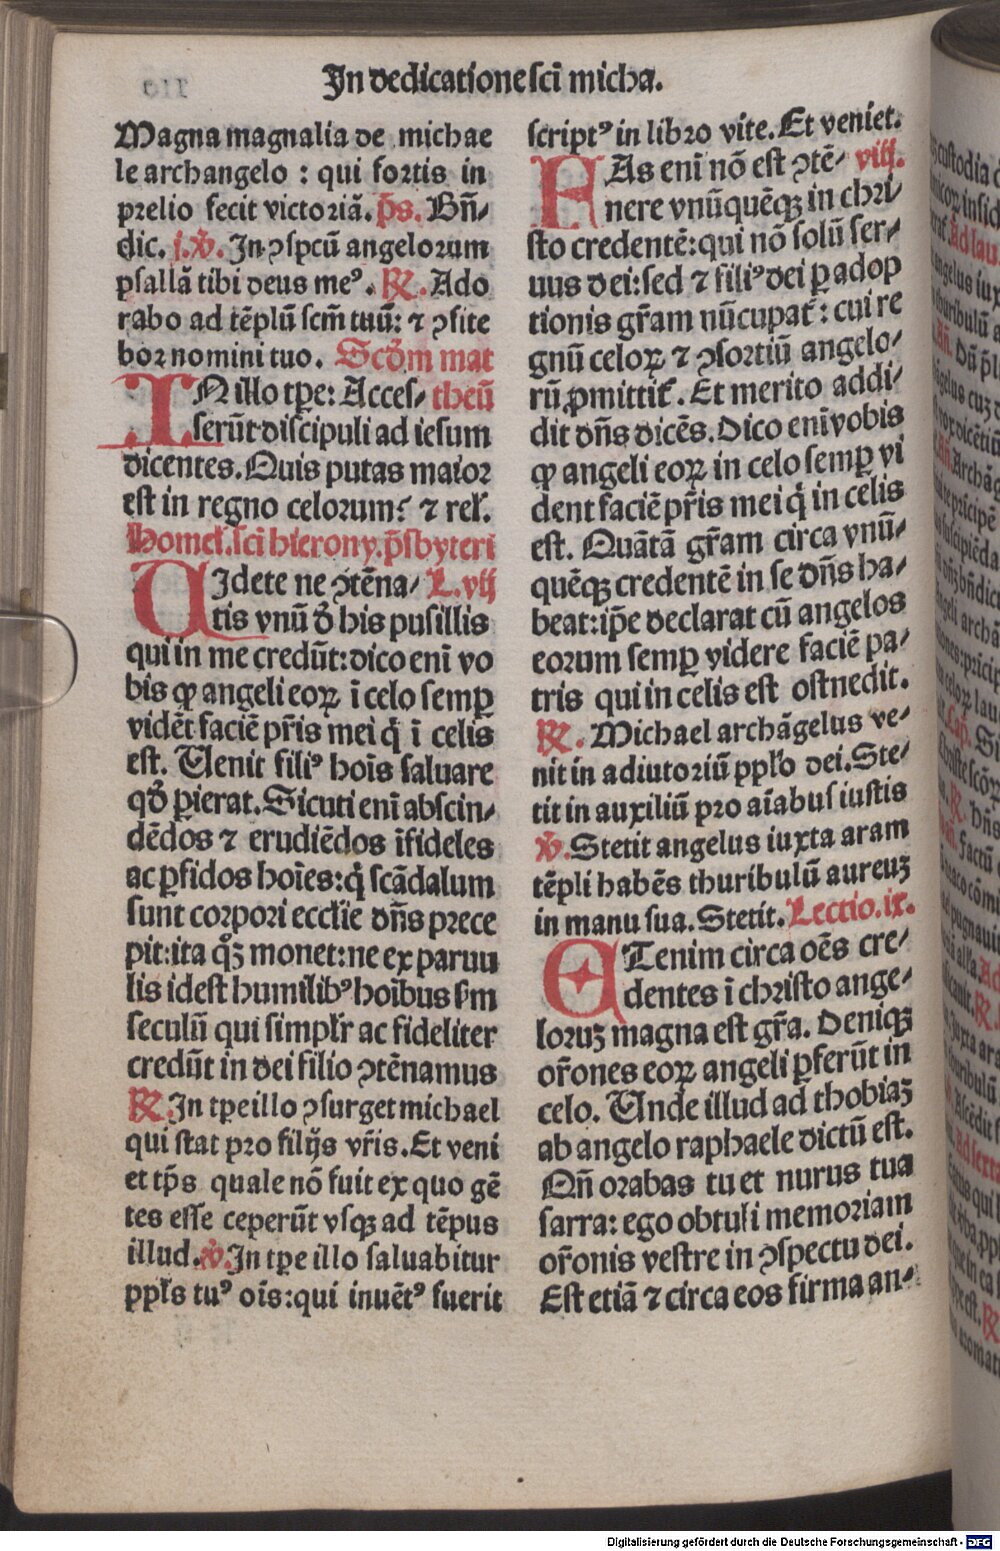 In dedicatione scī micha.
Magna magnalia de michae
le archangelo : qui fortis in
prelio fecit victoriā. p̄s. Bn̄⸗
dic. j. ꝟ. In ꝯspcū angelorum
psallā tibi deus meꝰ. ℟. Ado
rabo ad tēplū scm̄ tuū: ⁊ ꝯfite
bor nomini tuo. Scd̄m mat
IN illo tꝑe: Acces⸗ theū
serūt discipuli ad iesum
dicentes. Quis putas maior
est in regno celorum? ⁊ reł.
Homeł. scī hierony. p̄sbyteri
UIdete ne ꝯtēna⸗ L. vij
tis vnū d̓ his pusillis
qui in me credūt: dico enī vo
bis ꝙ angeli eoꝝ ī celo semꝑ
vidēt faciē pr̄is mei q̇ ī celis
est. Uenit filiꝰ hoīs saluare
qd̓ ꝑierat. Sicuti enī abscin⸗
dēdos ⁊ erudiēdos īfideles
ac ꝑfidos hoīes: q̇ scādalum
sunt corpori eccłie dn̄s prece
pit: ita qꝫ monet: ne ex paruu
lis idest humilibꝰ hoībus ẜm
seculū qui simpłr ac fideliter
credūt in dei filio ꝯtēnamus
℟. In tꝑe illo ꝯsurget michael
qui stat pro filijs vr̄is. Et veni
et tp̄s quale nō fuit ex quo gē
tes esse ceperūt vsqꝫ ad tēpus
illud. ꝟ. In tꝑe illo saluabitur
ppłs tuꝰ oīs: qui inuētꝰ fuerit
scriptꝰ in libro vite. Et veniet.
FAs enī nō est ꝯtē⸗ viij.
nere vnūquēqꝫ in chri⸗
sto credentē: qui nō solū ser⸗
uus dei: sed ⁊ filiꝰ dei ꝑ adop
tionis gr̄am nūcupať: cui re
gnū celoꝝ ⁊ ꝯsortiū angelo⸗
rū ꝓmittiť. Et merito addi⸗
dit dn̄s dicēs. Dico enī vobis
ꝙ angeli eoꝝ in celo semꝑ vi
dent faciē pr̄is mei q̇ in celis
est. Quātā gr̄am circa vnū⸗
quēqꝫ credentē in se dn̄s ha⸗
beat: ip̄e declarat cū angelos
eorum semꝑ videre faciē pa⸗
tris qui in celis est ostnedit.
℟. Michael archāgelus ve⸗
nit in adiutoriū ppło dei. Ste⸗
tit in auxiliū pro aīabus iustis
ꝟ. Stetit angelus iuxta aram
tēpli habēs thuribulū aureuꝫ
in manu sua. Stetit. Lectio. ix.
ETenim circa oēs cre⸗
dentes ī christo ange⸗
loruꝫ magna est gr̄a. Deniqꝫ
or̄ones eoꝝ angeli ꝑferūt in
celo. Unde illud ad thobiaꝫ
ab angelo raphaele dictū est.
Qn̄ orabas tu et nurus tua
sarra: ego obtuli memoriam
or̄onis vestre in ꝯspectu dei.
Est etiā ⁊ circa eos firma an⸗
Digitalisierung gefördert durch die Deutsche Forschungsgemeinschaft - DFG